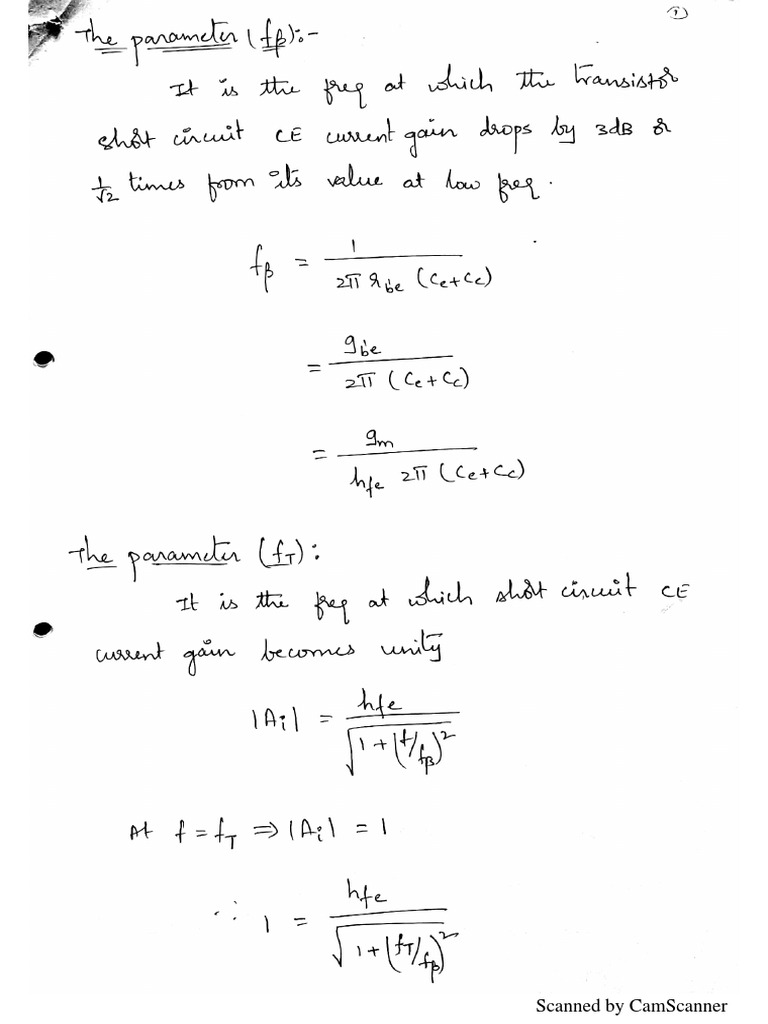 ①
The parameter (fβ):-
It is the freq at which the transistor
short circuit CE current gain drops by 3dB or
1/√2 times from its value at low freq.
fβ = 1 / 2π rb'e (Ce+Cc)
= gb'e / 2π (Ce+Cc)
= gm / hfe 2π (Ce+Cc)
The parameter (fT):
It is the freq at which short circuit CE
current gain becomes unity
|Ai| = hfe / √(1+(f/fβ)²)
At f = fT ⇒ |Ai| = 1
∴ 1 = hfe / √(1+(fT/fβ)²)
Scanned by CamScanner